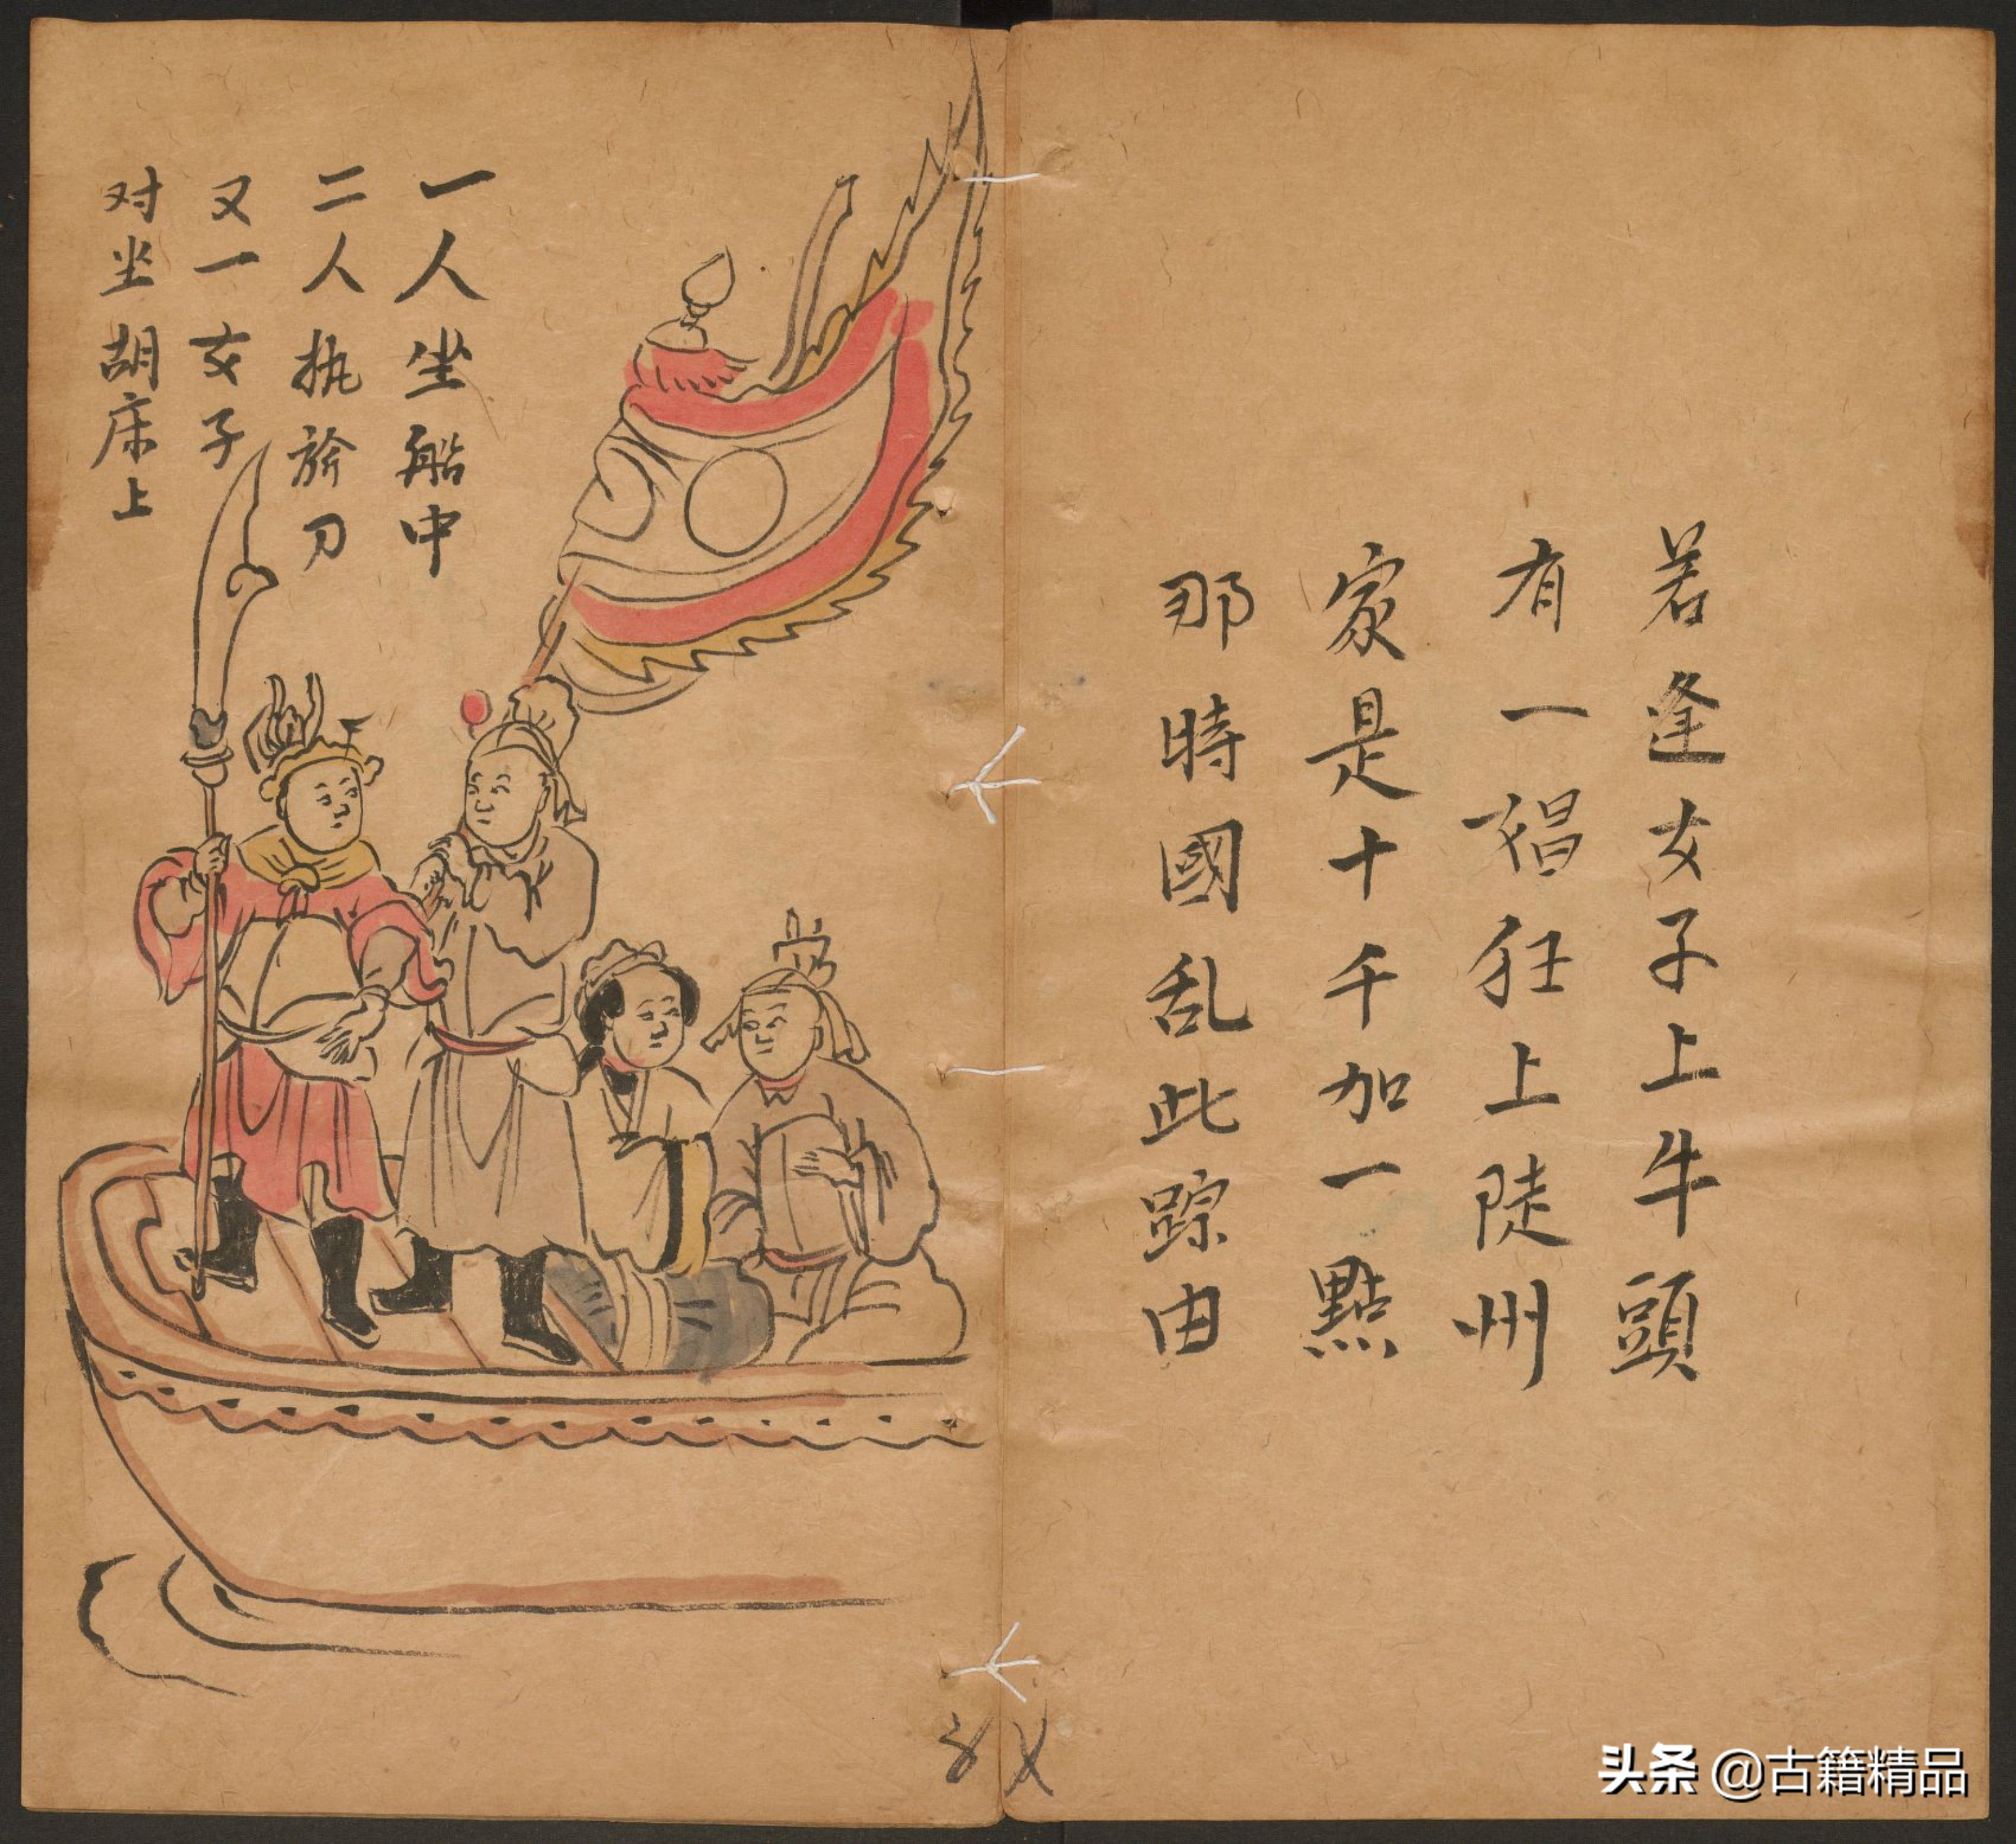 若逢女子上牛頭
有一娼狂上陡州
家是十千加一點
那時國乱此踪由
一人坐船中
二人执旂刀
又一女子
对坐胡床上
头条 @古籍精品